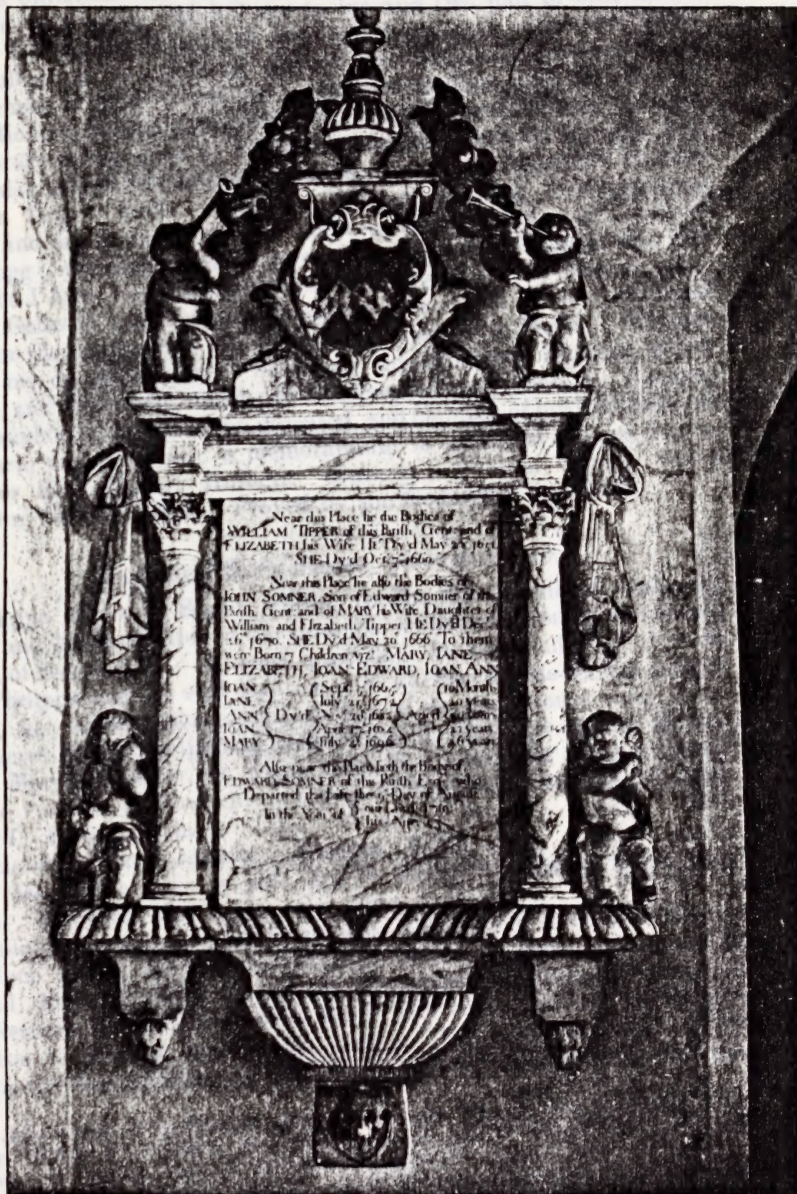 Near this Place lie the Bodies of
WILLIAM TIPPER of this Parish Gent: and of
ELIZABETH his Wife HE Dy'd May
SHE Dy'd Oct. 7th 1660.
Near this Place lie also the Bodies of
JOHN SOMNER, Son of Edward Somner of this
Parish Gent: and of MARY his Wife Daughter of
William and Elizabeth Tipper HE Dy'd Dec.
1670. SHE Dy'd May 20 1666 To them
were Born 7 Children viz: MARY, IANE
ELIZABETH, IOAN EDWARD, IOAN, ANN
IOAN Sept. Months
IANE July years
ANN Dy'd Aged years
IOAN April years
MARY July years
Also near this Place lieth the Body of
EDWARD SOMNER of this Parish Esq: who
Departed this Life the Day of August
In the Year of our Lord
his Age